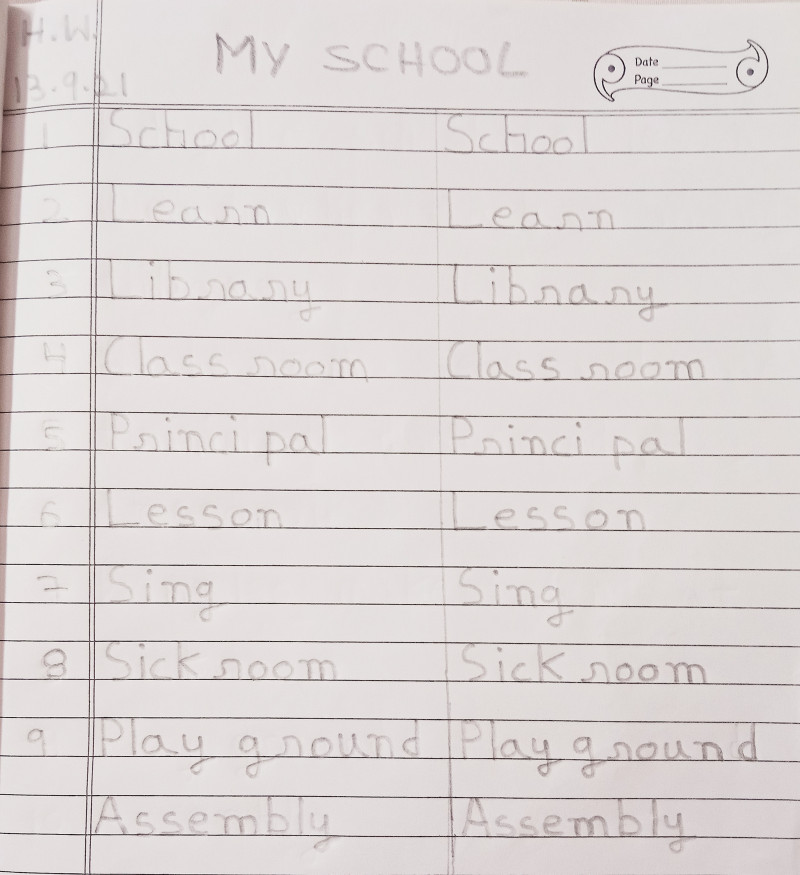 H.W.
MY SCHOOL
Date
Page
13.9.21
1 School School
2 Learn Learn
3 Library Library
4 Class room Class room
5 Principal Principal
6 Lesson Lesson
7 Sing Sing
8 Sick room Sick room
9 Play ground Play ground
Assembly Assembly